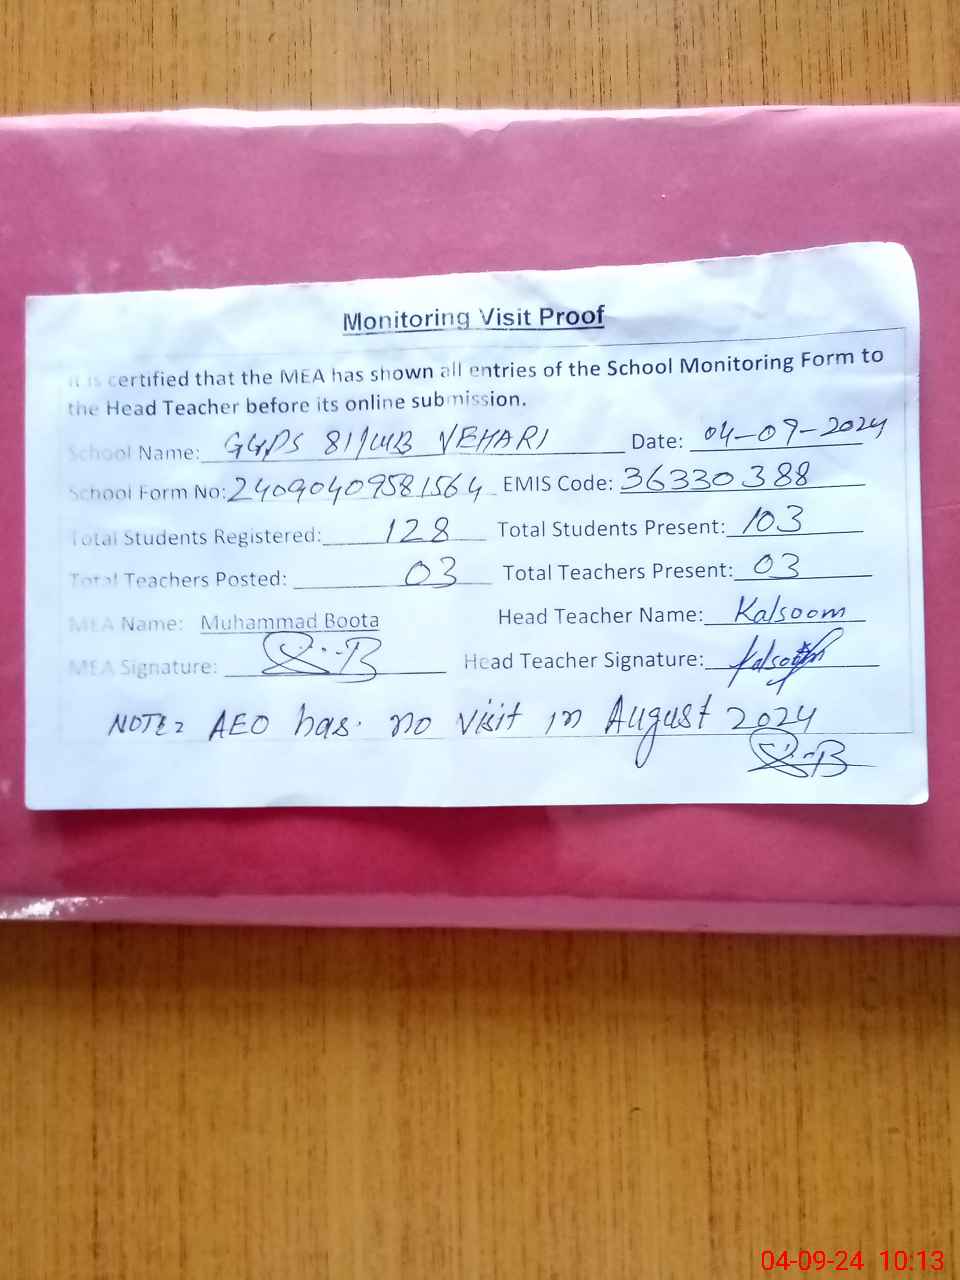 Monitoring Visit Proof
It is certified that the MEA has shown all entries of the School Monitoring Form to
the Head Teacher before its online submission.
School Name: GGPS 81/WB VEHARI Date: 04-09-2024
School Form No: 24090409581564 EMIS Code: 36330388
Total Students Registered: 128 Total Students Present: 103
Total Teachers Posted: 03 Total Teachers Present: 03
MEA Name: Muhammad Boota Head Teacher Name: Kalsoom
MEA Signature: Head Teacher Signature: Kalsoom
NOTE: AEO has no visit in August 2024
04-09-24 10:13